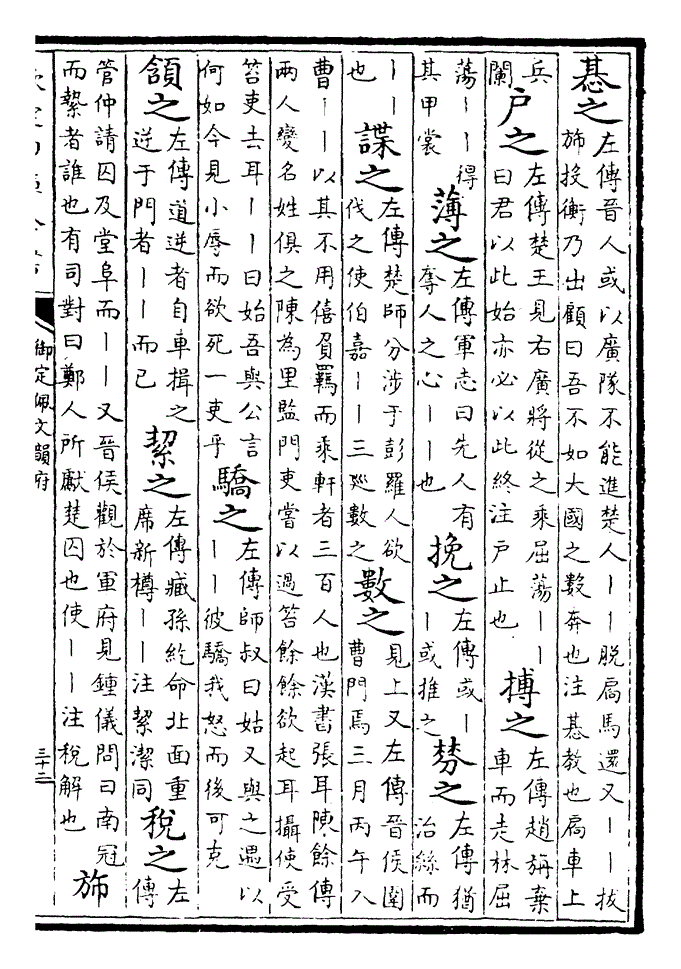 惎之左傳晉人或以廣隊不能進楚人丨丨脱扃馬還又丨丨拔
旆投衡乃出顧曰吾不如大國之數奔也注惎教也扃車上
兵
闌
户之左傳楚王見右廣將從之乘屈蕩丨丨
曰君以此始亦必以此終注户止也
搏之左傳趙旃棄
車而走林屈
蕩丨丨得
其甲裳
薄之左傳軍志曰先人有
奪人之心丨丨也
挽之左傳或丨
丨或推之
棼之左傳猶
治絲而
丨丨
也
諜之左傳楚師分涉于彭羅人欲
伐之使伯嘉丨丨三廵數之
數之見上又左傳晉侯圍
曹門焉三月丙午入
曹丨丨以其不用僖負羈而乘軒者三百人也漢書張耳陳餘傳
兩人變名姓俱之陳為里監門吏嘗以過笞餘餘欲起耳攝使受
笞吏去耳丨丨曰始吾與公言
何如今見小辱而欲死一吏乎
驕之左傳師叔曰姑又與之遇以
丨丨彼驕我怒而後可克
頷之左傳道逆者自車揖之
逆于門者丨丨而已
絜之左傳臧孫紇命北面重
席新樽丨丨注絜潔同
税之左
傳
管仲請囚及堂阜而丨丨又晉侯觀於軍府見鍾儀問曰南冠
而縶者誰也有司對曰鄭人所獻楚囚也使丨丨注税解也
斾
御定佩文韻府
三十二